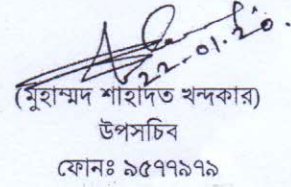 ২২-০১.২০.
(মুহাম্মদ শাহাদত খন্দকার)
উপসচিব
ফোনঃ ৯৫৭৭৯৭৯